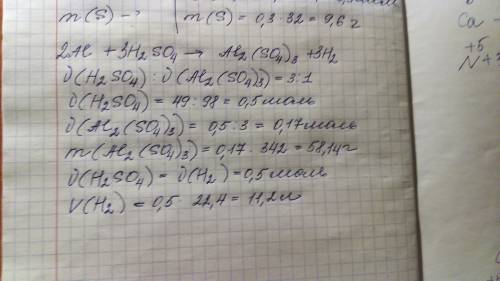 m(S) → m(S) = 0,3 · 32 = 9,6 г
2Al + 3H₂SO₄ → Al₂(SO₄)₃ + 3H₂
ν(H₂SO₄) : ν(Al₂(SO₄)₃) = 3:1
ν(H₂SO₄) = 49 : 98 = 0,5 моль
ν(Al₂(SO₄)₃) = 0,5 : 3 = 0,17 моль
m(Al₂(SO₄)₃) = 0,17 · 342 = 58,14 г
ν(H₂SO₄) = ν(H₂) = 0,5 моль
V(H₂) = 0,5 · 22,4 = 11,2 л
Ca
+5
N